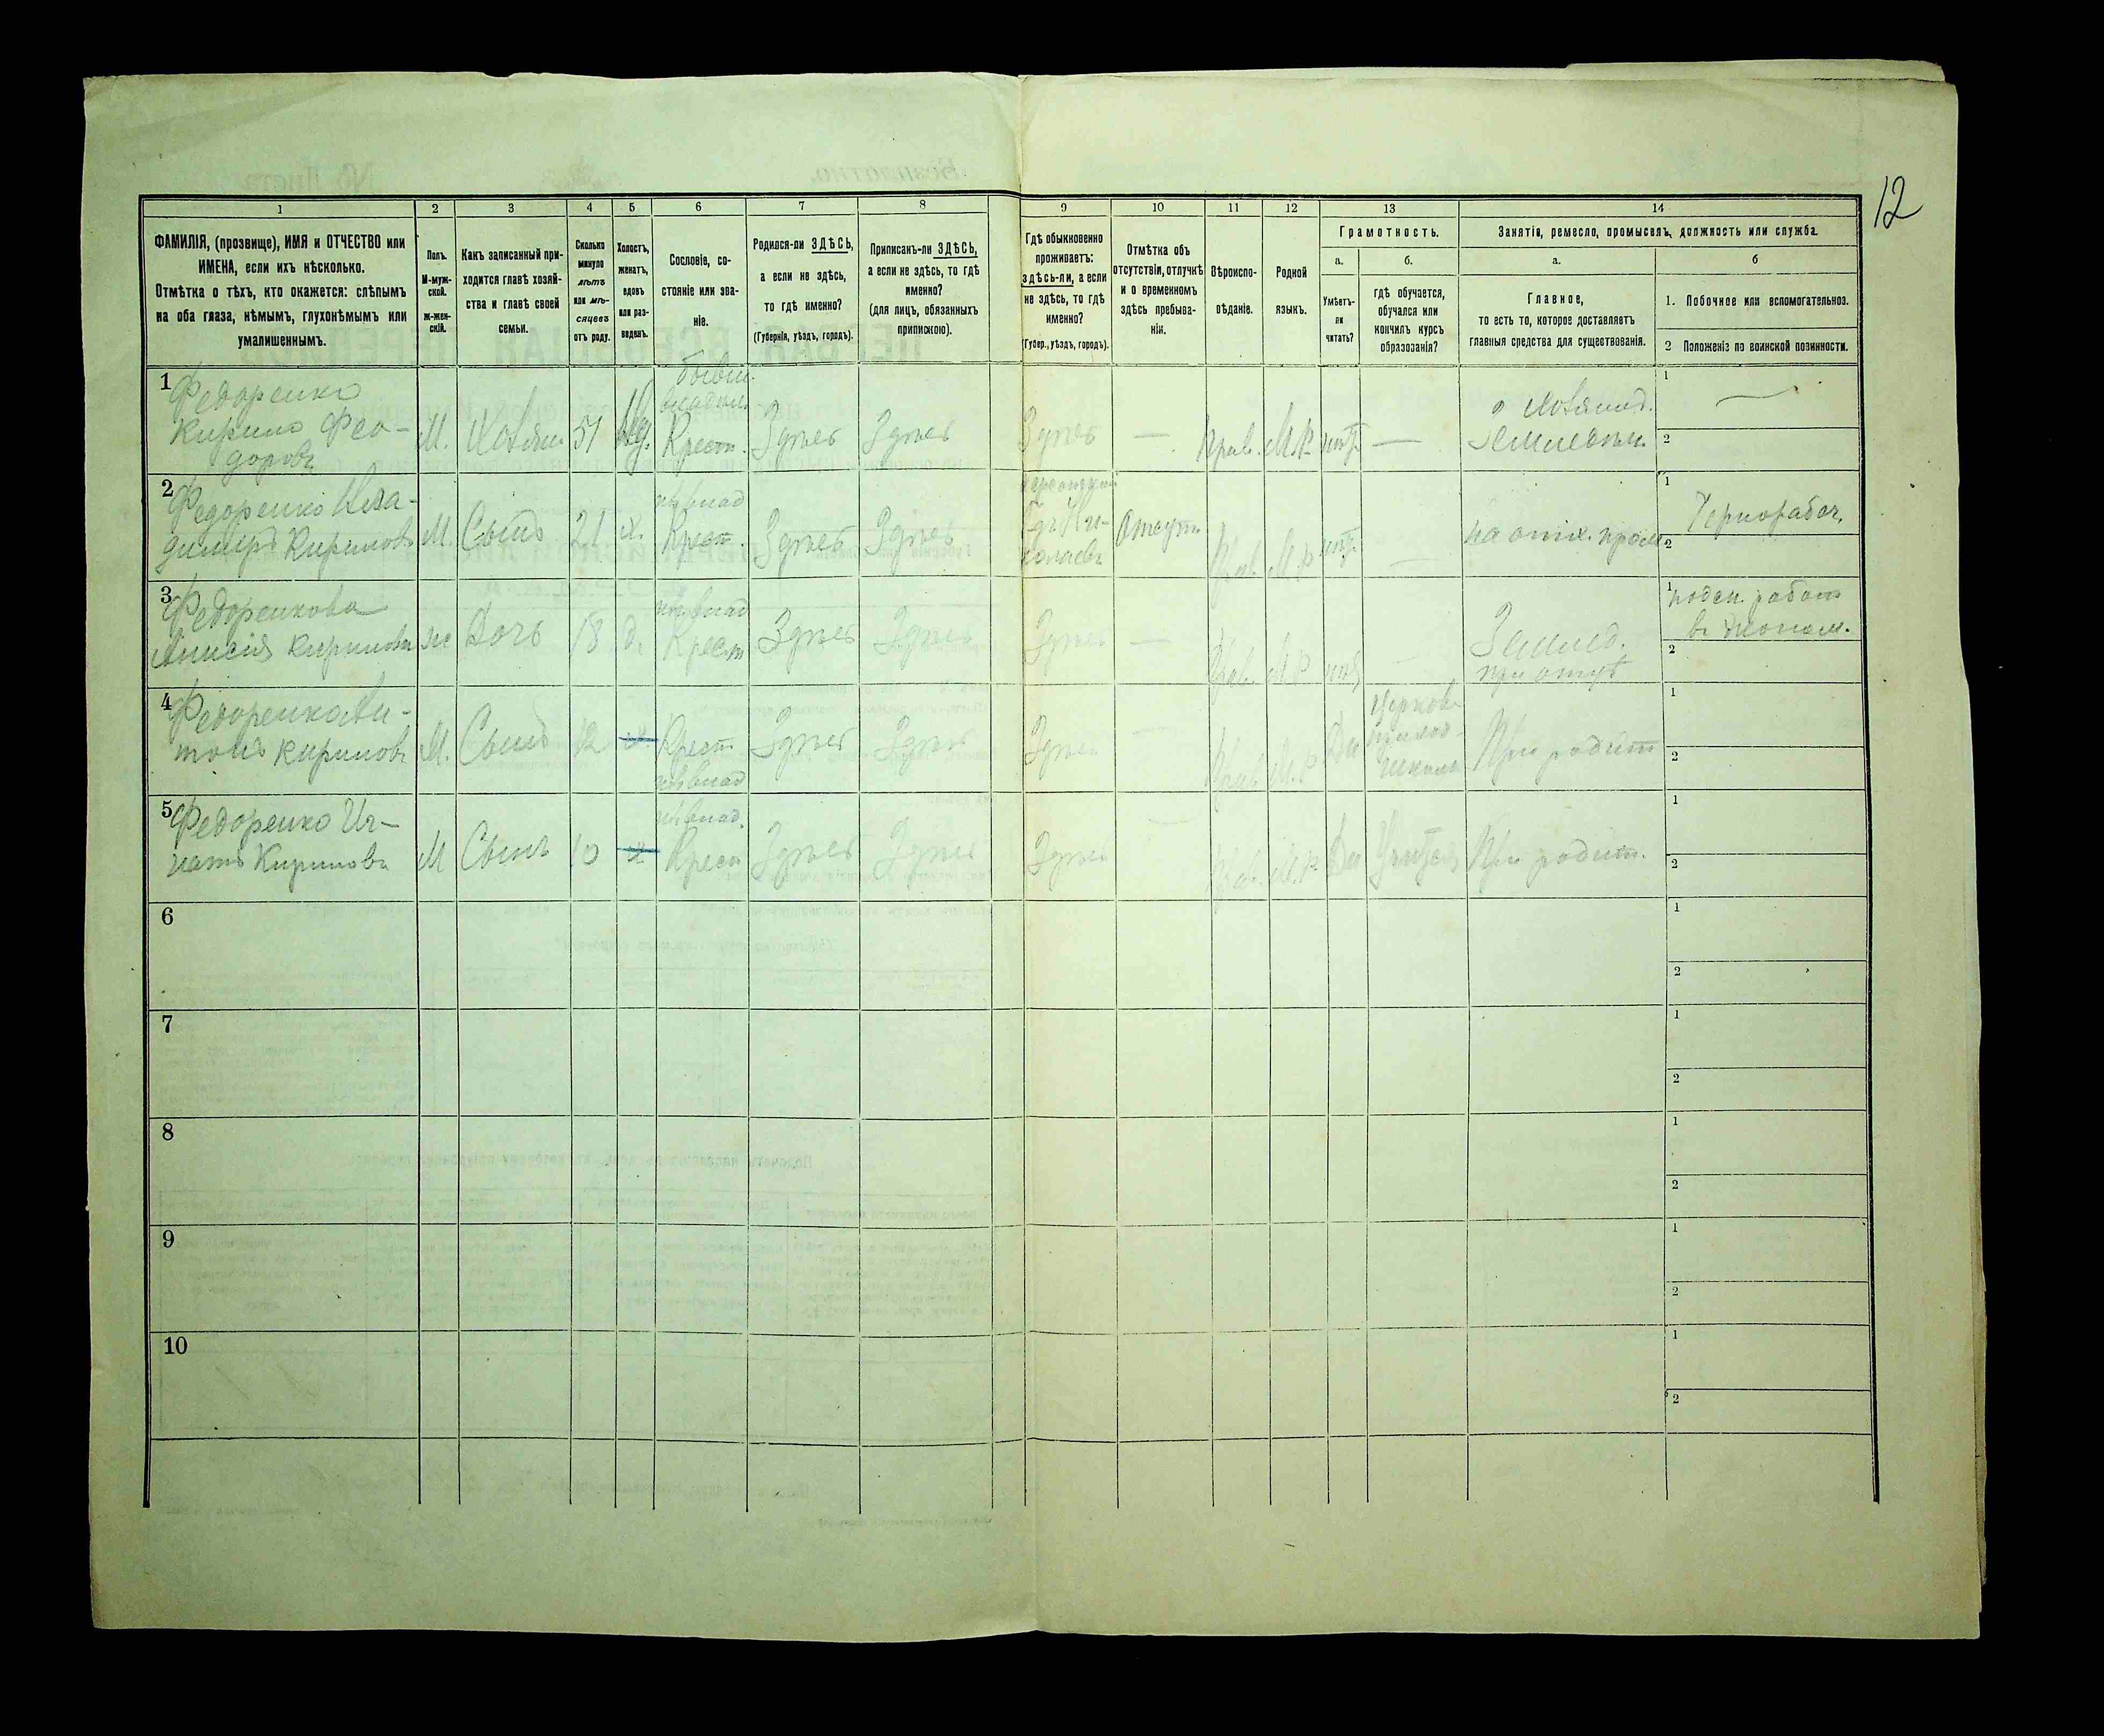 12
1 2 3 4 5 6 7 8 9 10 11 12 13 14
ФАМИЛІЯ, (прозвище), ИМЯ и ОТЧЕСТВО или
ИМЕНА, если ихъ нѣсколько.
Отмѣтка о тѣхъ, кто окажется: слѣпымъ
на оба глаза, нѣмымъ, глухонѣмымъ или
умалишеннымъ.
Полъ.
М-муж-
ской.
ж-жен-
скій.
Какъ записанный при-
ходится главѣ хозяй-
ства и главѣ своей
семьи.
Сколько
минуло
лѣтъ
или мѣ-
сяцевъ
отъ роду.
Холостъ,
женатъ,
вдовъ
или раз-
веденъ.
Сословіе, со-
стояніе или зва-
ніе.
Родился-ли ЗДѢСЬ,
а если не здѣсь,
то гдѣ именно?
(Губернія, уѣздъ, городъ).
Приписанъ-ли ЗДѢСЬ,
а если не здѣсь, то гдѣ
именно?
(для лицъ, обязанныхъ
припискою).
Гдѣ обыкновенно
проживаетъ:
здѣсь-ли, а если
не здѣсь, то гдѣ
именно?
(Губер., уѣздъ, городъ).
Отмѣтка объ
отсутствіи, отлучкѣ
и о временномъ
здѣсь пребыва-
ніи.
Вѣроиспо-
вѣданіе.
Родной
языкъ.
Грамотность.
а. б.
Умѣетъ-
ли
читать?
гдѣ обучается,
обучался или
кончилъ курсъ
образованія?
Занятіе, ремесло, промыселъ, должность или служба.
а. б
Главное,
то есть то, которое доставляетъ
главныя средства для существованія.
1. Побочное или вспомогательное.
2 Положеніе по воинской повинности.
1
Федоренко
Кирило Фео-
доровъ
М. Хозяин 51 Вд. Крест. Здѣсь Здѣсь Здѣсь — Прав. М.Р. — Хозяинъ. Земледѣл.
1 —
2
2
Федоренко Вла-
димиръ Кириловъ
М. Сынъ 21 х. Крест. Здѣсь Здѣсь
Николаевъ
Отсут. Прав. М.Р. — на отх. пром.
1 Чернорабоч.
2
3
Федоренкова
Анисія Кирилова
ж Дочь 18 д. Крест Здѣсь Здѣсь Здѣсь — Прав. М.Р. — Землед. при отцѣ
1 поден. работ
въ эконом.
2
4
Федоренко Ан-
тонъ Кириловъ
М. Сынъ 12 х Крест Здѣсь Здѣсь Здѣсь — Прав. М.Р. Да
Церков-
приход-
школа
При родит
1
2
5
Федоренко Иг-
натъ Кириловъ
М Сынъ 10 х Крест Здѣсь Здѣсь Здѣсь — Прав. М.Р. Да Учится При родит.
1
2
6
1
2
7
1
2
8
1
2
9
1
2
10
1
2